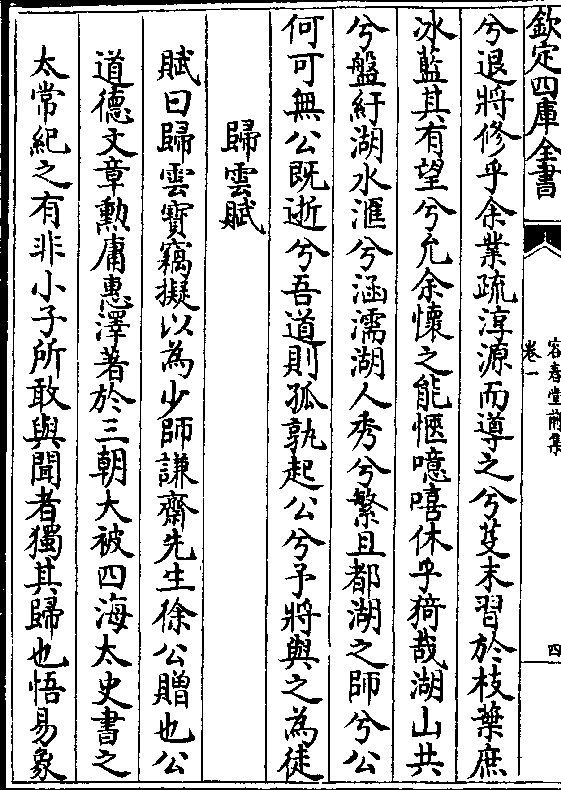 欽定四庫全書
容春堂前集
卷一
四
兮退將修乎余業疏淳源而導之兮芟末習於枝葉庶
冰藍其有望兮允余懷之能愜噫嘻休乎猗哉湖山共
兮盤紆湖水滙兮涵濡湖人秀兮繁且都湖之師兮公
何可無公既逝兮吾道則孤孰起公兮予將與之為徒
歸雲賦
賦曰歸雲寶竊擬以為少師謙齋先生徐公贈也公
道德文章勳庸惠澤著於三朝大被四海太史書之
太常紀之有非小子所敢與聞者獨其歸也悟易象